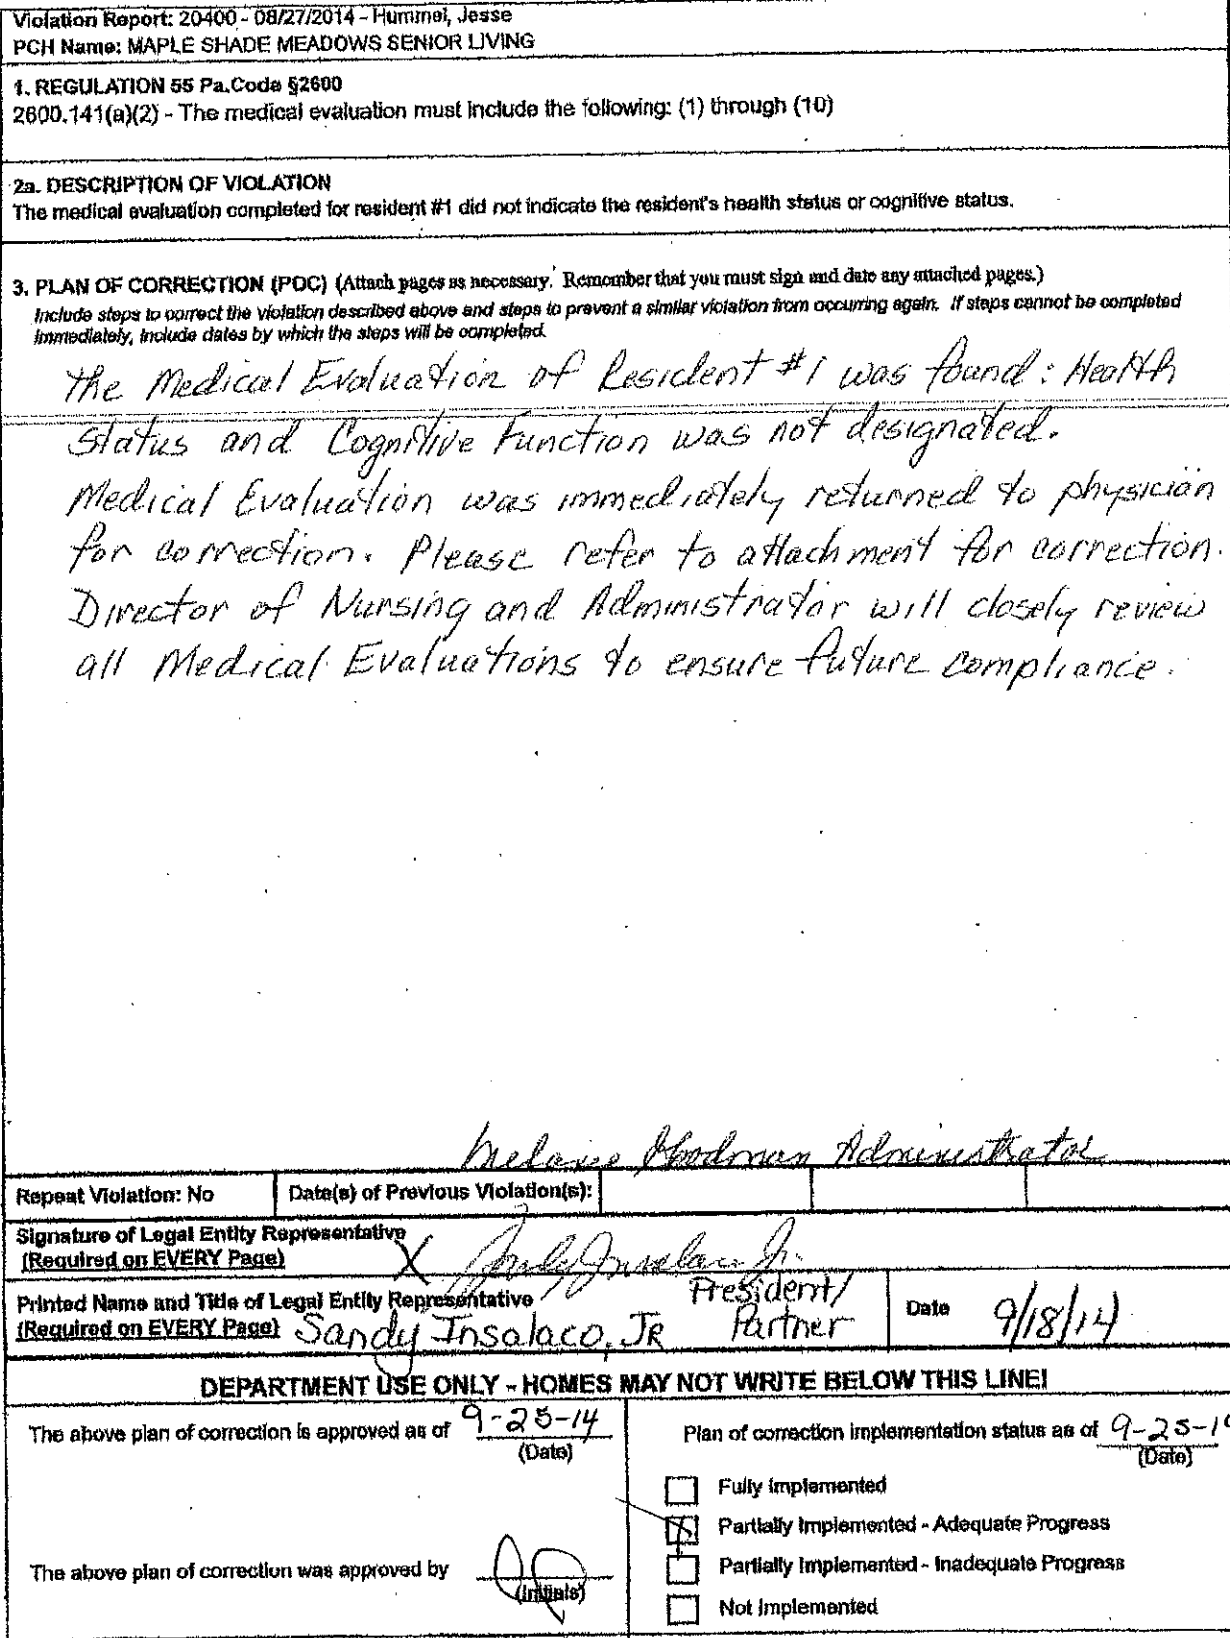 Violation Report: 20400 - 08/27/2014 - Hummel, Jesse
PCH Name: MAPLE SHADE MEADOWS SENIOR LIVING
1. REGULATION 55 Pa.Code §2600
2600.141(a)(2) - The medical evaluation must include the following: (1) through (10)
2a. DESCRIPTION OF VIOLATION
The medical evaluation completed for resident #1 did not indicate the resident's health status or cognitive status.
3. PLAN OF CORRECTION (POC) (Attach pages as necessary. Remember that you must sign and date any attached pages.)
Include steps to correct the violation described above and steps to prevent a similar violation from occurring again. If steps cannot be completed
immediately, include dates by which the steps will be completed.
The Medical Evaluation of Resident #1 was found: Health
Status and Cognitive Function was not designated.
Medical Evaluation was immediately returned to physician
for correction. Please refer to attachment for correction.
Director of Nursing and Administrator will closely review
all Medical Evaluations to ensure future compliance.
Melanie Administrator
Repeat Violation: No
Date(s) of Previous Violation(s):
Signature of Legal Entity Representative
(Required on EVERY Page) X Sandy Insalaco Jr.
Printed Name and Title of Legal Entity Representative President/
(Required on EVERY Page) Sandy Insalaco, JR Partner
Date 9/18/14
DEPARTMENT USE ONLY - HOMES MAY NOT WRITE BELOW THIS LINE!
The above plan of correction is approved as of 9-25-14
(Date)
Plan of correction implementation status as of 9-25-14
(Date)
Fully Implemented
Partially Implemented - Adequate Progress
Partially Implemented - Inadequate Progress
Not Implemented
The above plan of correction was approved by
(Initials)